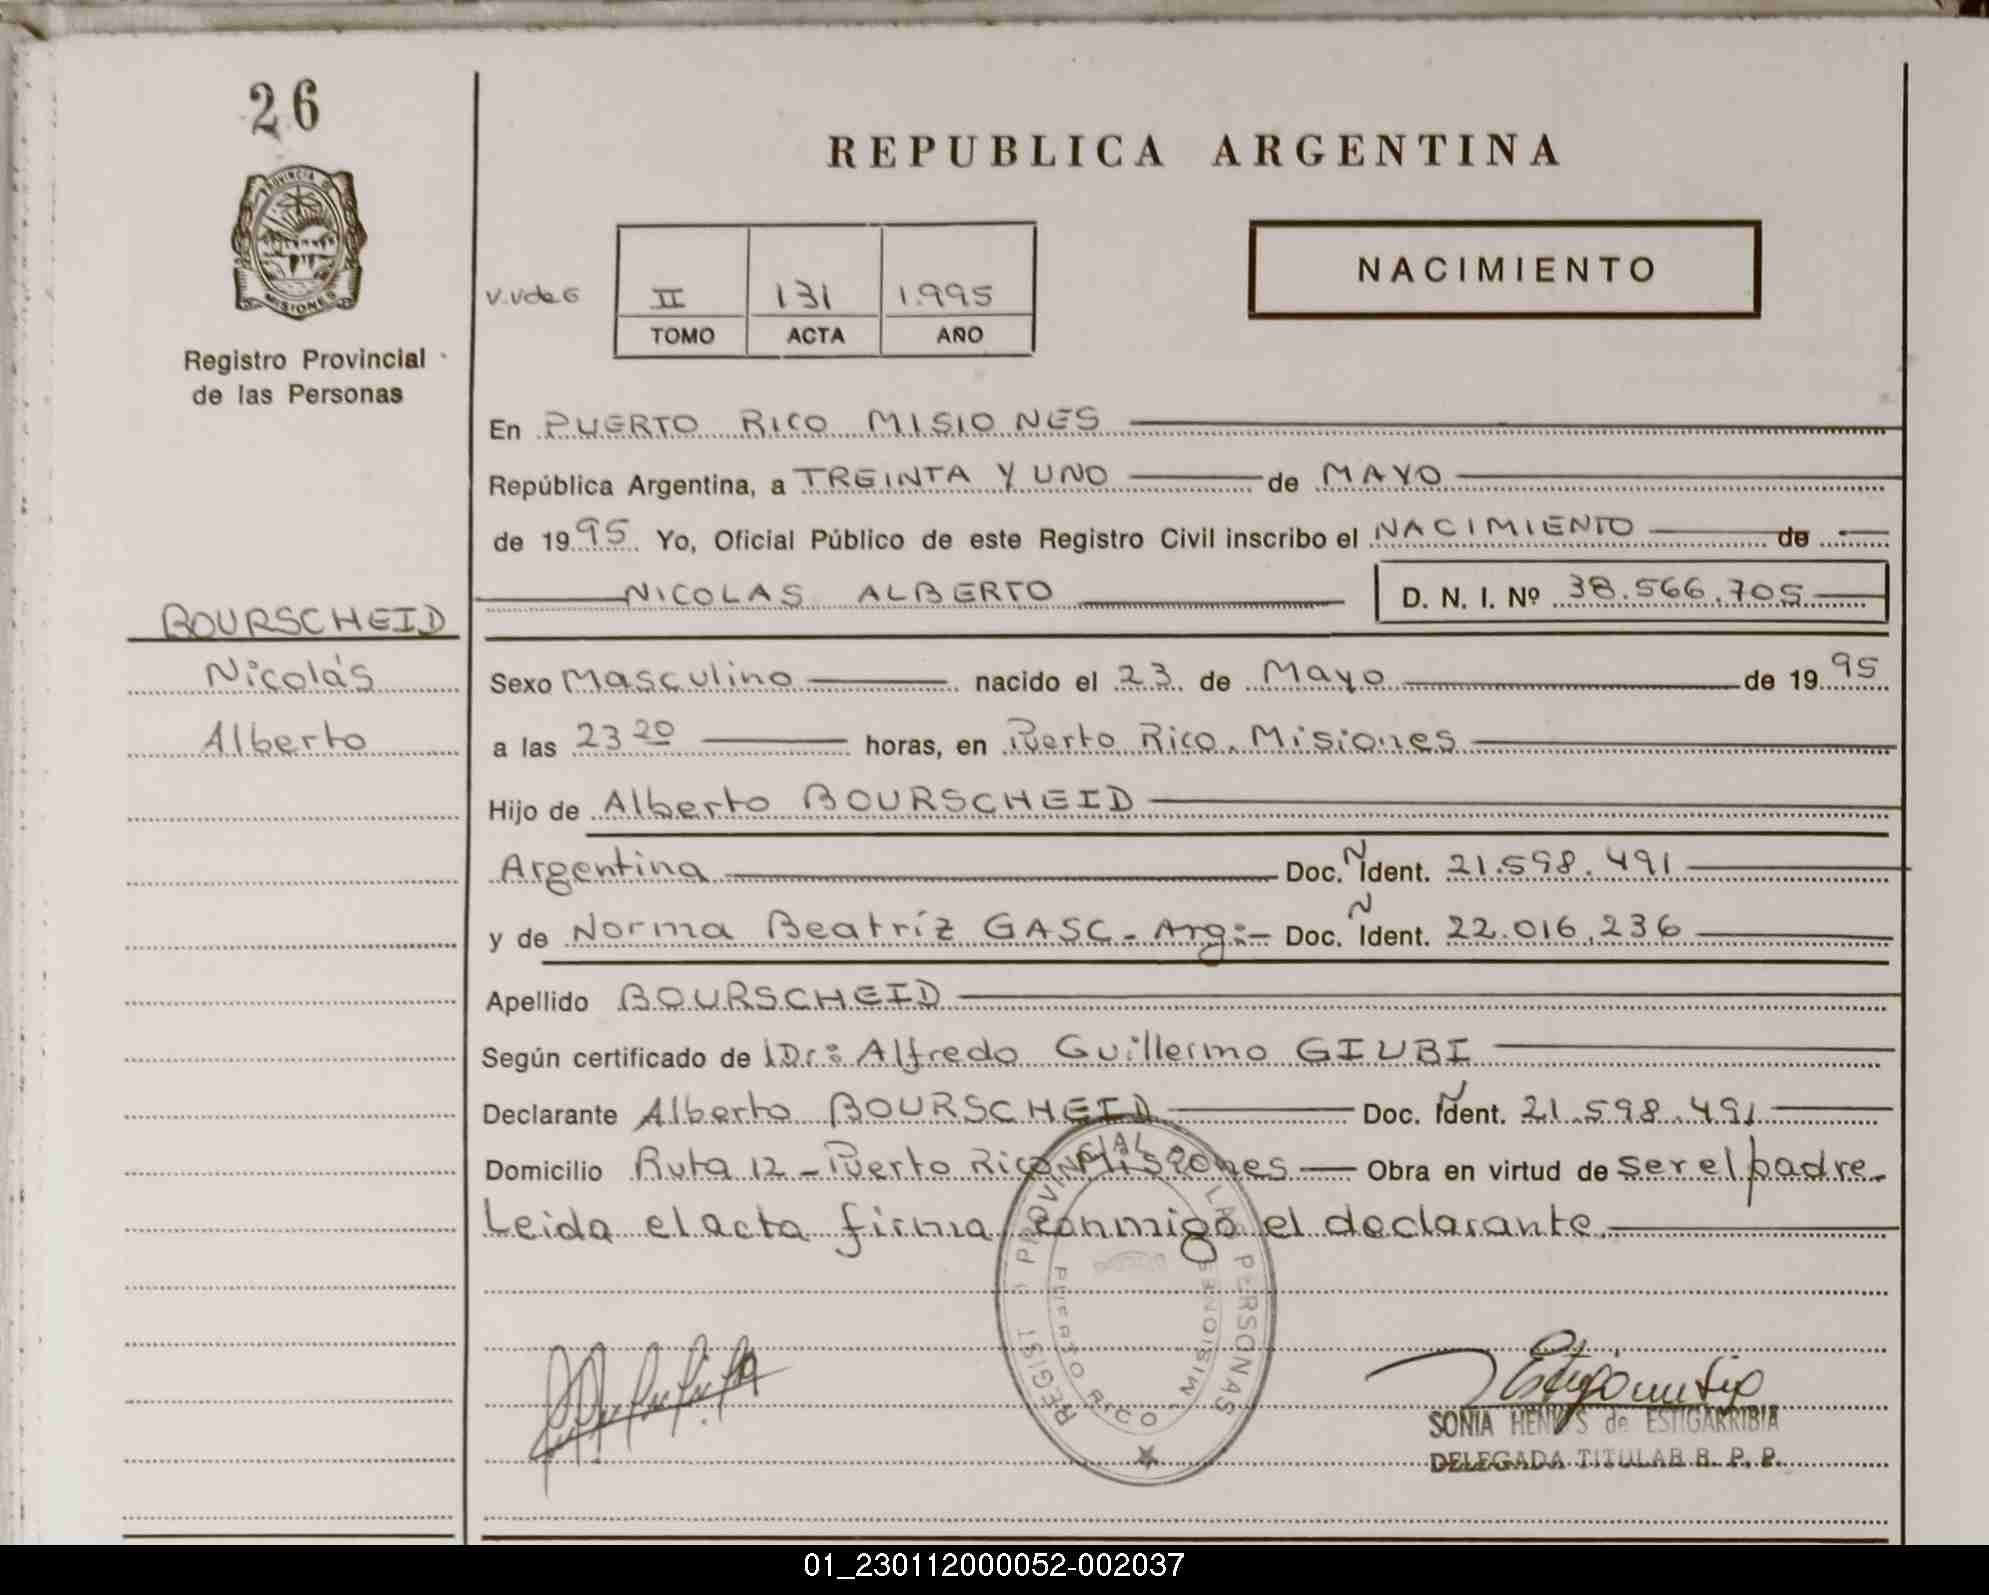 26
PROVINCIA DE
MISIONES
Registro Provincial
de las Personas
REPUBLICA ARGENTINA
NACIMIENTO
II 131 1.995
TOMO ACTA AÑO
En PUERTO RICO MISIONES
República Argentina, a TREINTA Y UNO de MAYO
de 1995 Yo, Oficial Público de este Registro Civil inscribo el NACIMIENTO de
NICOLAS ALBERTO D. N. I. Nº 38.566.705
BOURSCHEID
Nicolás
Alberto
Sexo Masculino nacido el 23 de Mayo de 1995
a las 23 20 horas, en Puerto Rico. Misiones
Hijo de Alberto BOURSCHEID
Argentina Doc. Ident. 21.598.491
y de Norma Beatríz GASC - Arg:- Doc. Ident. 22.016.236
Apellido BOURSCHEID
Según certificado de Dr: Alfredo Guillermo GIUBI
Declarante Alberto BOURSCHEID Doc. Ident. 21.598.491
Domicilio Ruta 12 - Puerto Rico Misiones Obra en virtud de ser el padre.
Leida el acta firma conmigo el declarante.
REGIST PROVINCIAL LAS PERSONAS
PUERTO RICO - MISIONES
SONIA de ESTIGARRIBIA
DELEGADA TITULAR R. P. P.
01_230112000052-002037